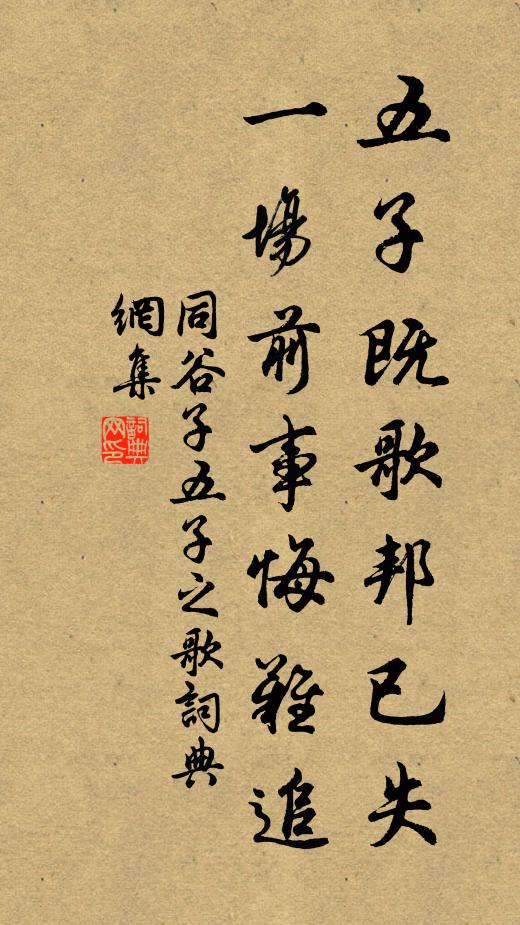 五子既歌邦已失
一場前事悔難追
同谷子五子之歌詞典
網集
詞典網印